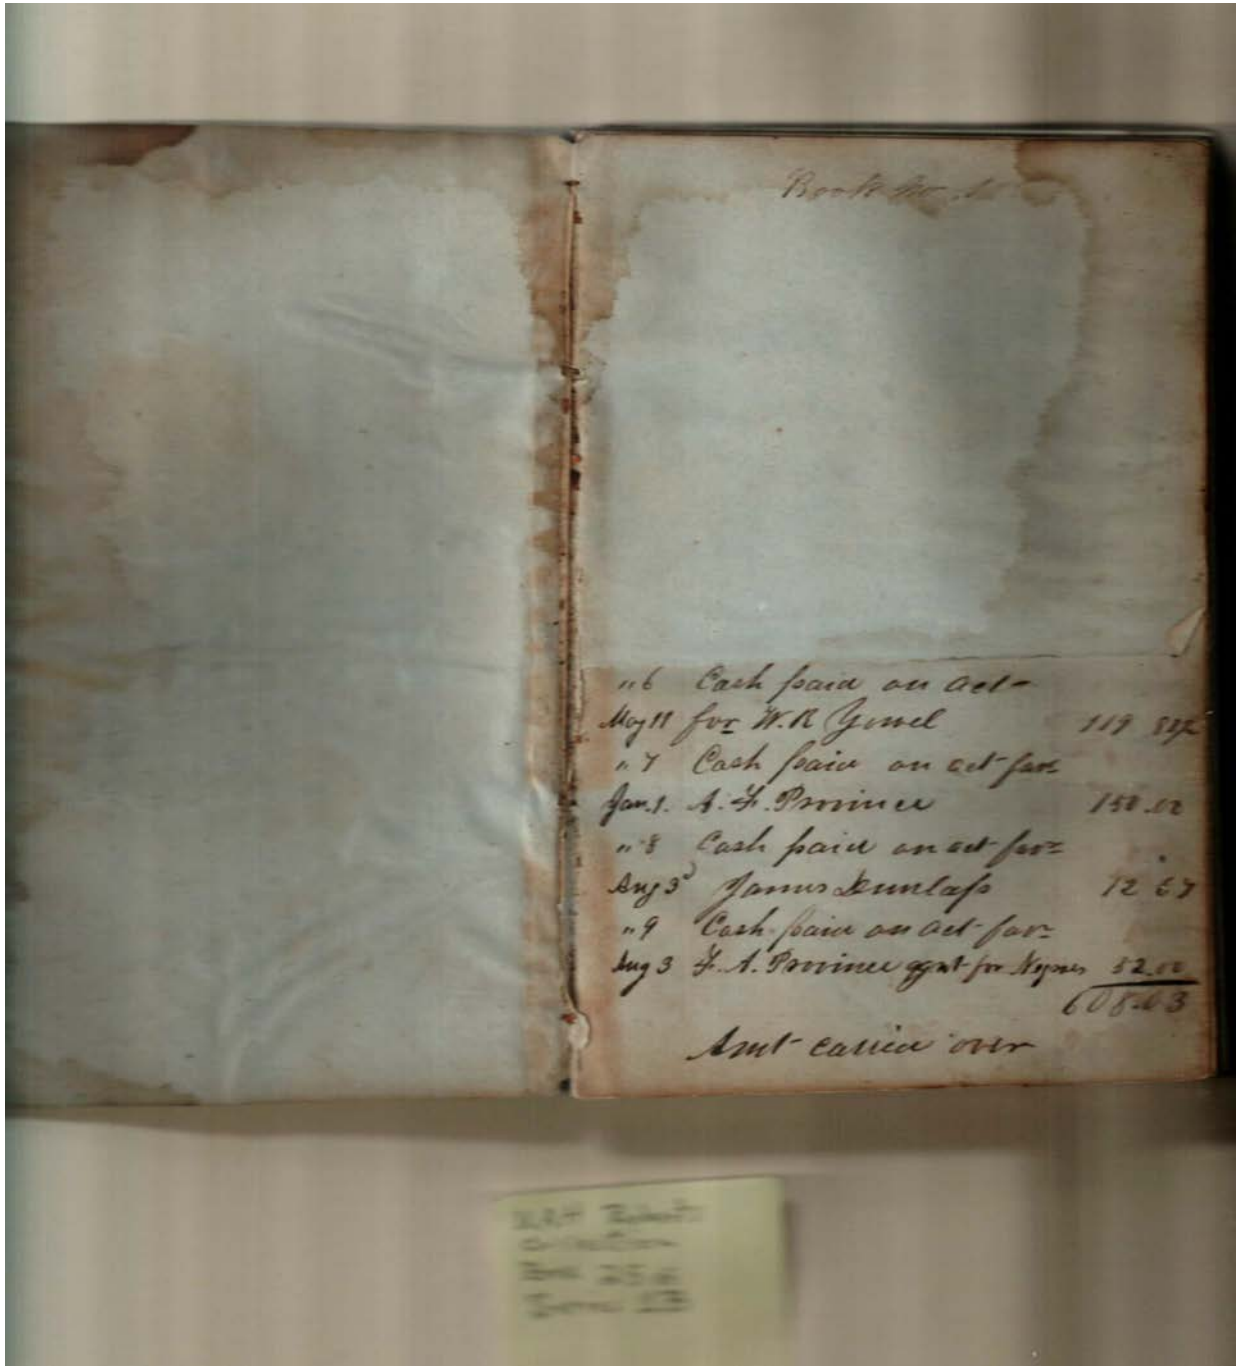 Book No. 1
" 6 Cash paid on act
May 11 for W. R. Yowel 119
" 7 Cash paid on act for
Jan. 1. A. F. Province 150.00
" 8 Cash paid on act for
Aug 3 James Dunlap 12 67
" 9 Cash paid on act for
Aug 3 F. A. Province agnt for Negroes 52.00
608.03
Amt carried over
Box